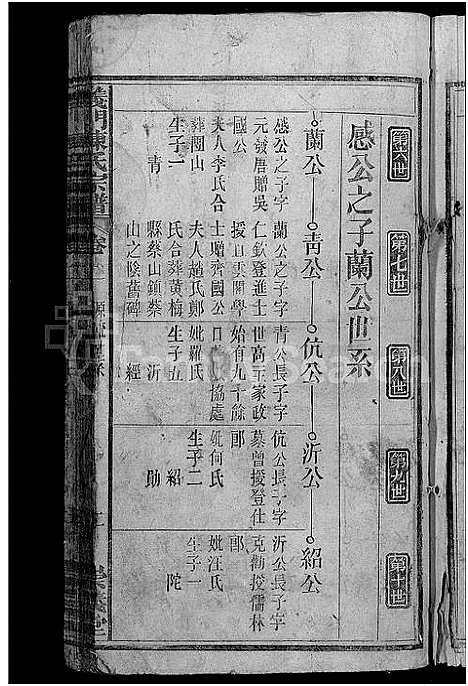 第六世
第七世
第八世
第九世
第十世
感公之子蘭公世系
蘭公
青公
伉公
沂公
紹公
感公之子字
元發唐贈吳
國公
夫人李氏合
葬團山
生子一
青
蘭公之子字
仁欽登進士
授直雲閣學
士贈齊國公
夫人趙氏鄭
氏合葬黃梅
縣蔡山鎮蔡
山之陰舊碑
青公長子字
世高主家政
始有九十餘
口協處
妣羅氏
生子五
沂
經
伉公長子字
慕曾援登仕
郎
妣何氏
生子二
紹
勛
沂公長子字
克勤授儒林
郎
妣汪氏
生子一
陀
義門陳氏宗譜
卷